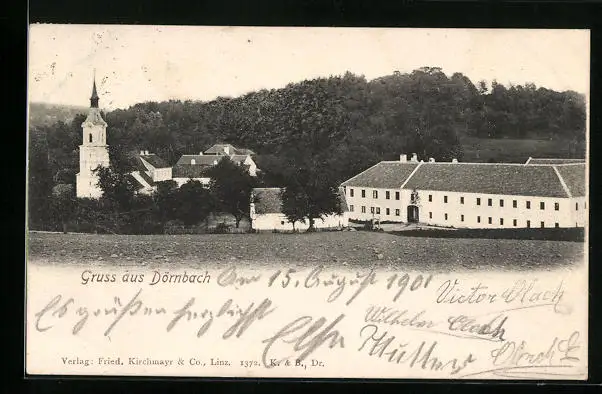 Gruss aus Dörnbach Am 15. August 1901
Es grüßen herzlichst
Victor Olbrich
Wilhelm
Mutter
Verlag: Fried. Kirchmayr & Co., Linz. 1372. K. & B., Dr.